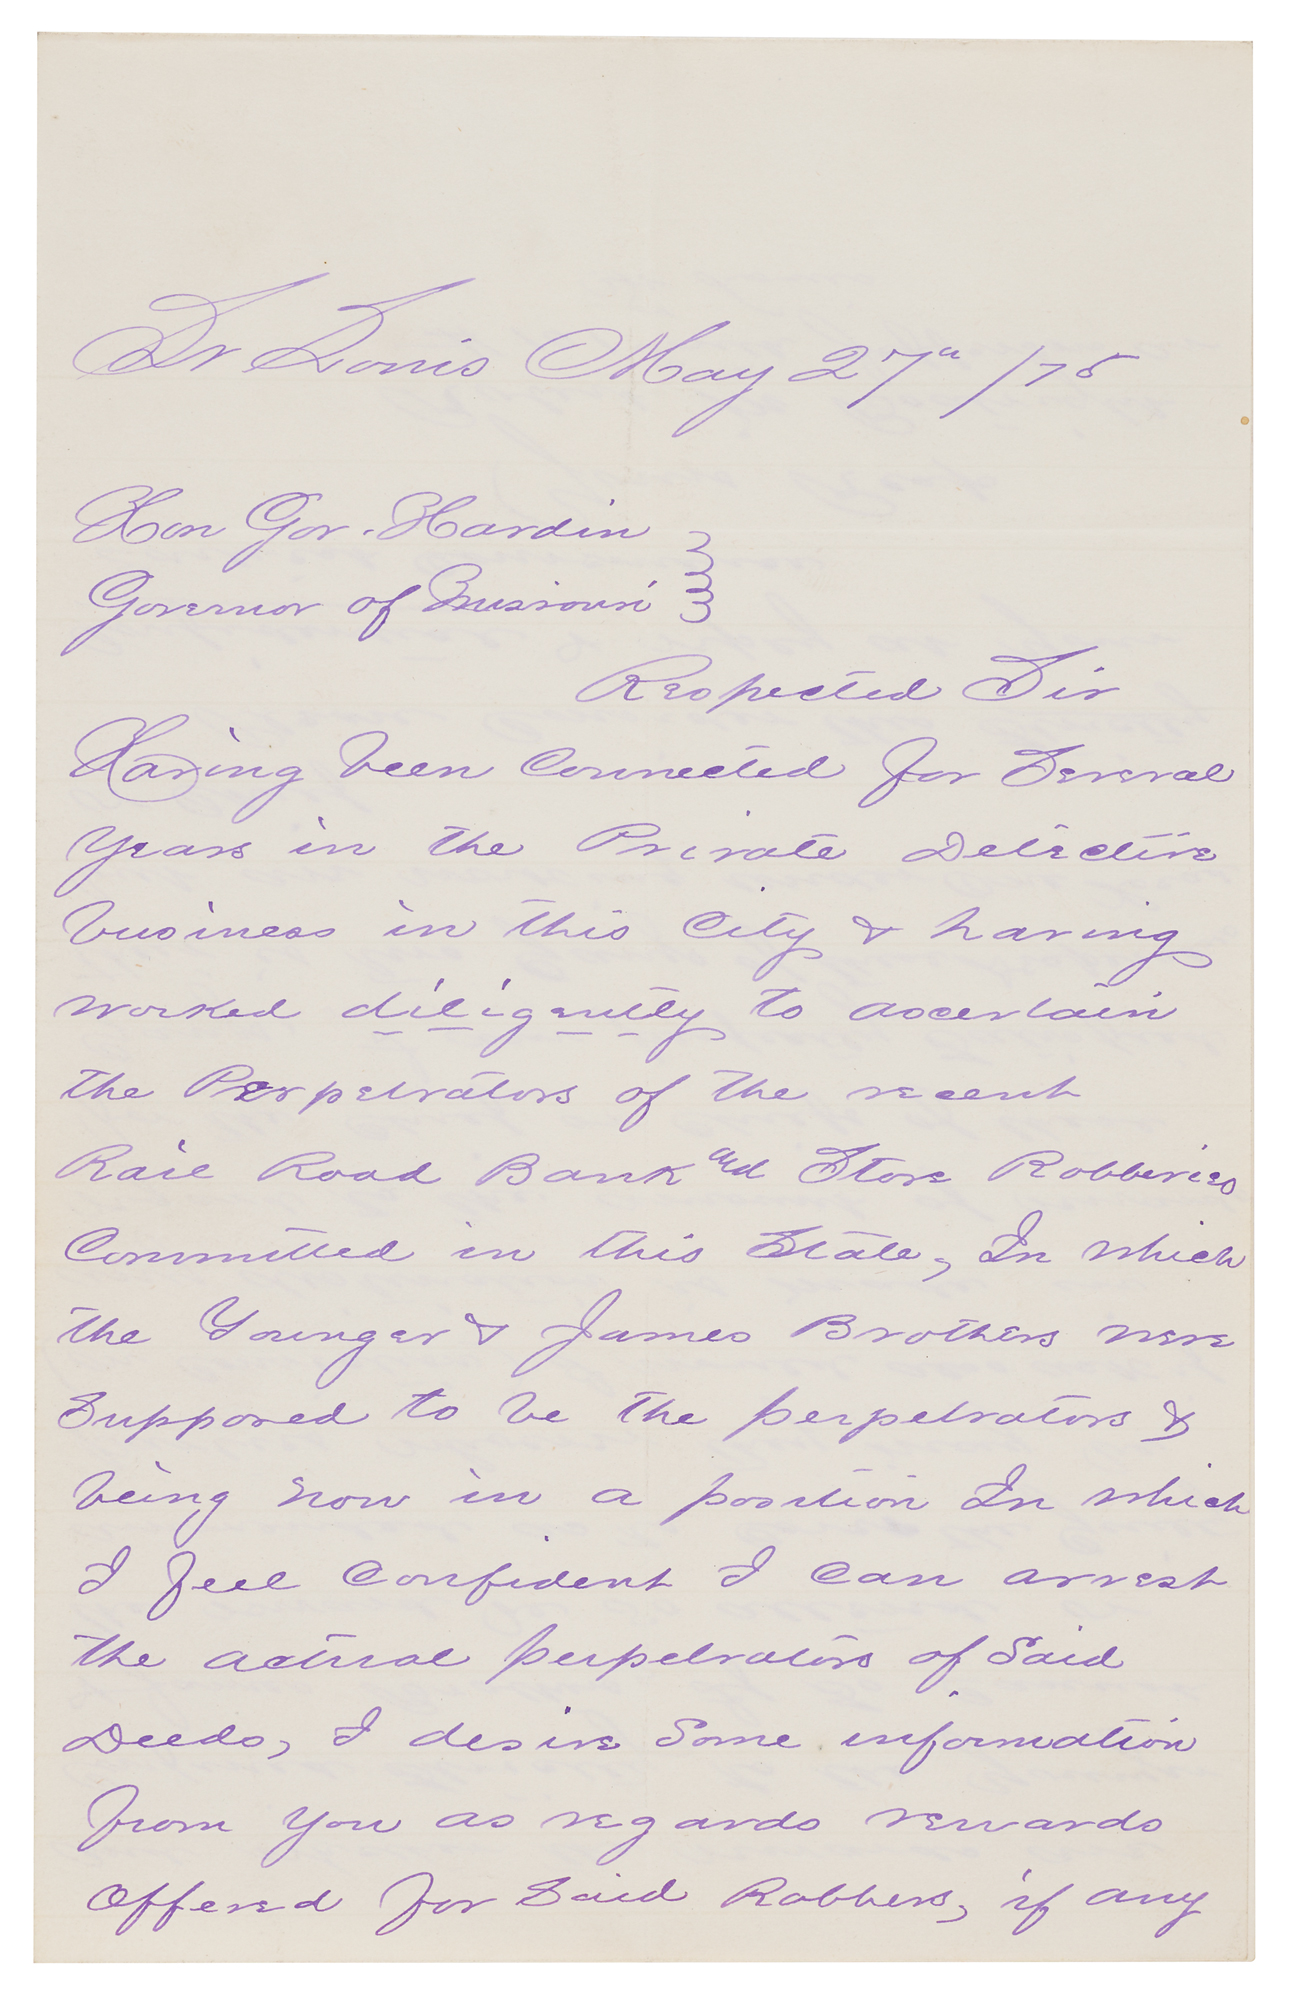 St Louis May 27" /75
Hon Gov. Hardin
Governor of Missouri
Respected Sir
Having been Connected for Several
Years in the Private Detective
business in this City & having
worked diligently to ascertain
the Perpetrators of the recent
Rail Road Bank and Store Robberies
Committed in this State, In which
the Younger & James Brothers were
Supposed to be the perpetrators &
being now in a position In which
I feel Confident I can arrest
the actual perpetrators of Said
Deeds, I desire Some information
from you as regards rewards
Offered for Said Robbers, if any